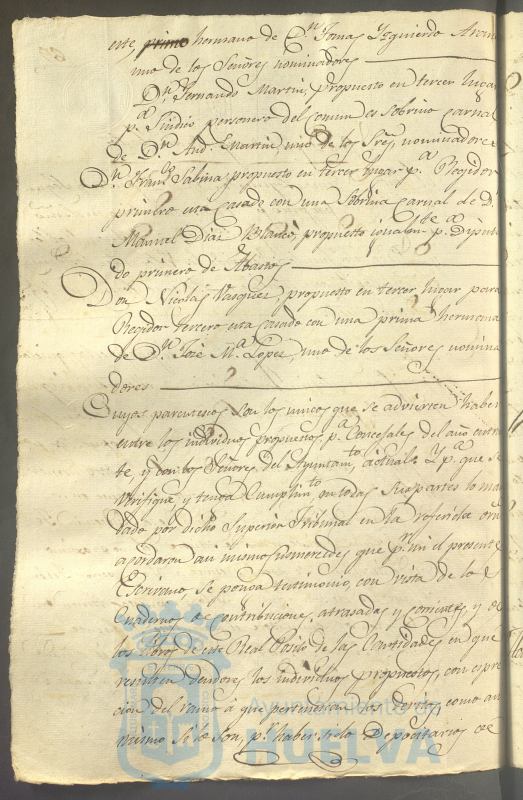 este, primo hermano de Dn. Tomas Izquierdo
uno de los Señores nominadores
Dn. Fernando Martin, propuesto en tercer lugar
pa. Sindico personero del comun es sobrino carnal
de Dn. Ands. Martin, uno de los Sres. nominadores
Dn. Franco. Sabina propuesto en tercer lugar pa. Regidor
primero esta casado con una sobrina carnal de D.
Manuel Diaz Blanco, propuesto igualmte. pa. Diputa
do primero de Abastos
Don Nicolas Vazquez, propuesto en tercer lugar para
Regidor tercero esta casado con una prima hermana
de Dn. José Ma. Lopez, uno de los Señores nomina
dores
Cuyos parentescos son los unicos que se advierten haber
entre los individuos propuestos pa. Concejales del año entran
te, y con los Señores del Ayuntamto. actual. Y pa. que se
verifique y tenga cumplimto. en todas sus partes lo man
dado por dicho Superior Tribunal en la referida orn
acordaron asi mismo sus mercedes que pr. mi el presente
Escrivano se ponga testimonio, con vista de los
Cuadernos de contribuciones atrasadas y corrientes, y de
los libros de este Real Posito de las cantidades en que
resulten deudores los individuos propuestos, con espre
cion del ramo á que pertenezcan los devitos, como asi
mismo si lo son, pr. haber sido Depositarios de
Ayuntamiento
HUELVA